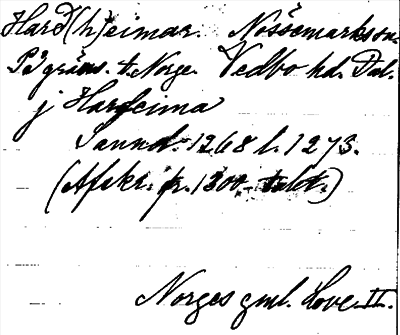 Harð(h)eimar. Nössemarks sn.
På gräns. t. Norge. Vedbo hd. Dal.
j Harðeima
Sannd. 1268 l. 1273.
(Afskr. fr. 1300-talet.)
Norges gml. Love II.